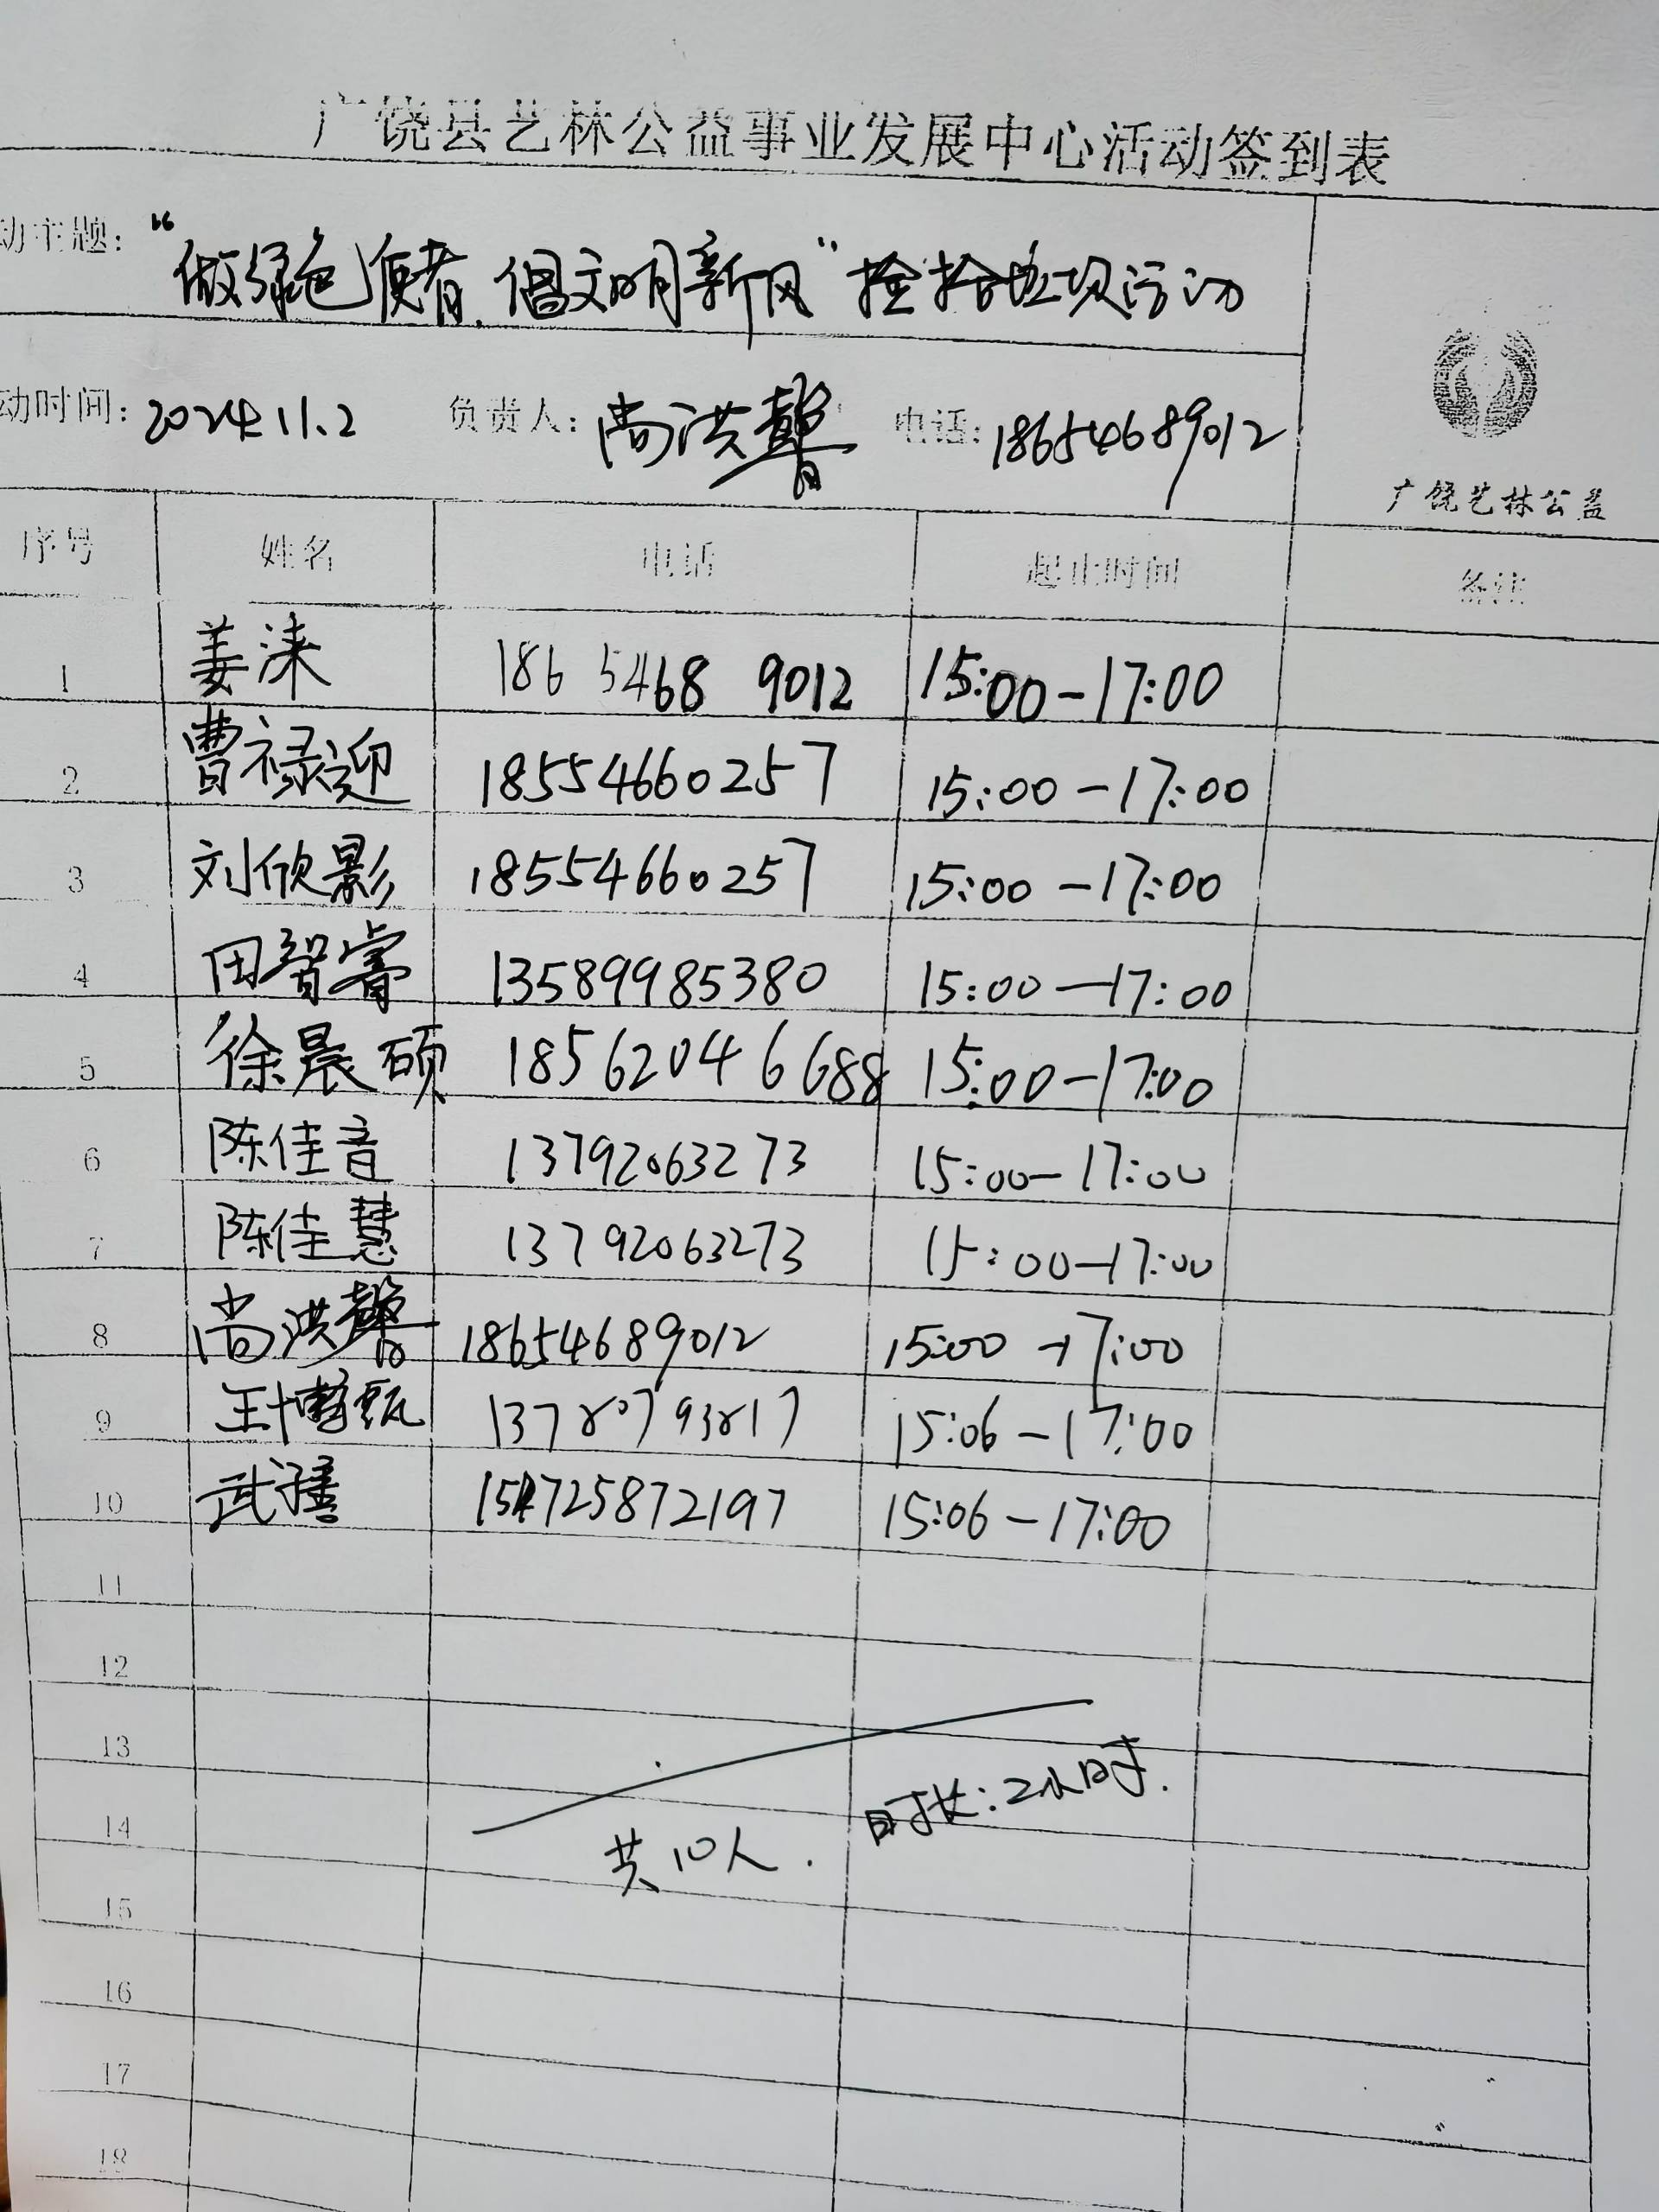 广饶县艺林公益事业发展中心活动签到表
动主题：“做绿色使者，倡文明新风”捡拾垃圾活动
动时间：2024.11.2 负责人：尚洪馨 电话：18654689012
广饶艺林公益
序号 姓名 电话 起止时间 备注
1 姜涞 186 5468 9012 15:00-17:00
2 曹禄迎 18554660257 15:00-17:00
3 刘欣影 18554660257 15:00-17:00
4 田智睿 13589985380 15:00—17:00
5 徐晨硕 18562046688 15:00-17:00
6 陈佳音 13792063273 15:00-17:00
7 陈佳慧 13792063273 15:00-17:00
8 尚洪馨 18654689012 15:00-17:00
9 15:06-17:00
10 15:06-17:00
11
12
13
14
15
16
17
18
共10人. 时长:2小时.